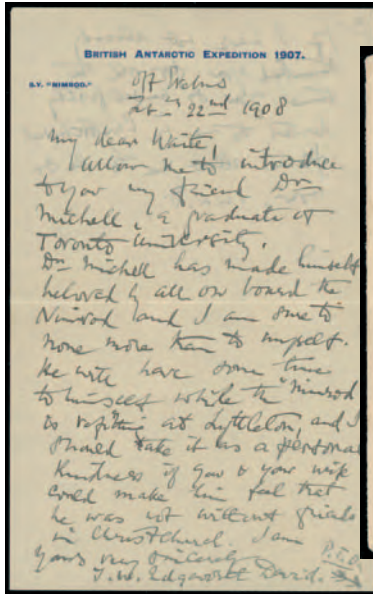 BRITISH ANTARCTIC EXPEDITION 1907.
S.Y. "NIMROD."
off
Feb 22nd 1908
My dear Waite,
Allow me to introduce
to you my friend Dr
Michell, a graduate of
Toronto University.
Dr Michell has made himself
beloved by all on board the
Nimrod and I am sure to
none more than to myself.
He will have some time
to himself while the "Nimrod
is refitting at Lyttelton, and I
should take it as a personal
kindness if you & your wife
could make him feel that
he was not without friends
in Christchurch. I am
yours very sincerely
T. W. Edgeworth David.
P.T.O.